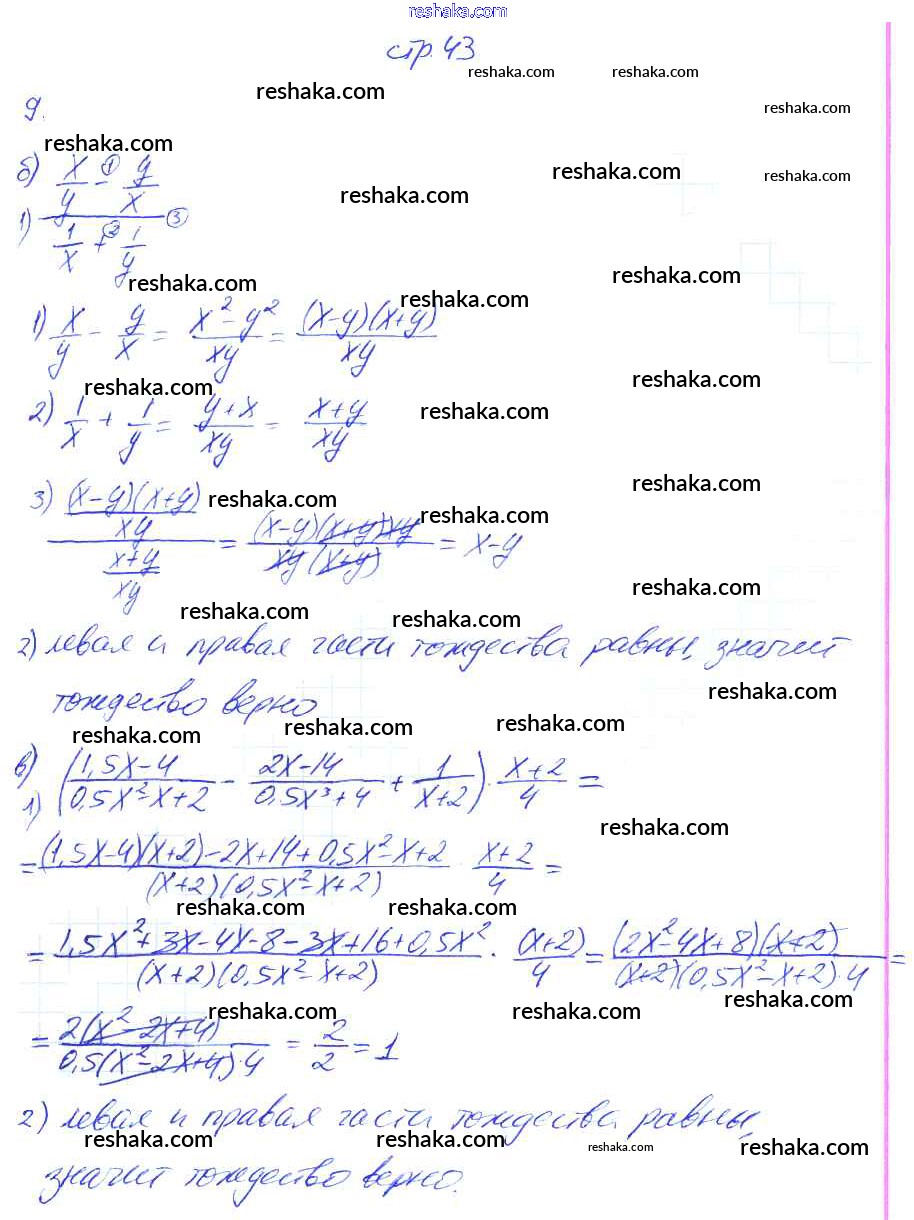 reshaka.com
стр. 43
reshaka.com reshaka.com
reshaka.com
reshaka.com
9.
reshaka.com
reshaka.com
reshaka.com
reshaka.com
б) x/y -① y/x
1) ——— ③
1/x +② 1/y
reshaka.com
reshaka.com
reshaka.com
1) x/y - y/x = (x²-y²)/xy = (x-y)(x+y)/xy
reshaka.com
reshaka.com
2) 1/x + 1/y = (y+x)/xy = (x+y)/xy
reshaka.com
reshaka.com
3) ((x-y)(x+y)/xy)/((x+y)/xy) = (x-y)(x+y)xy/xy(x+y) = x-y
reshaka.com
reshaka.com
reshaka.com
reshaka.com
reshaka.com
2) левая и правая части тождества равны, значит
reshaka.com
тождество верно
reshaka.com
reshaka.com
reshaka.com
в) 1) ((1,5x-4)/(0,5x²-x+2) - (2x-14)/(0,5x³+4) + 1/(x+2)) · (x+2)/4 =
reshaka.com
= ((1,5x-4)(x+2)-2x+14+0,5x²-x+2)/((x+2)(0,5x²-x+2)) · (x+2)/4 =
reshaka.com
reshaka.com
= (1,5x²+3x-4x-8-3x+16+0,5x²)/((x+2)(0,5x²-x+2)) · (x+2)/4 = (2x²-4x+8)(x+2)/((x+2)(0,5x²-x+2)·4) =
reshaka.com
reshaka.com
reshaka.com
= 2(x²-2x+4)/(0,5(x²-2x+4)·4) = 2/2 = 1
2) левая и правая части тождества равны,
reshaka.com
reshaka.com
reshaka.com
reshaka.com
значит тождество верно.